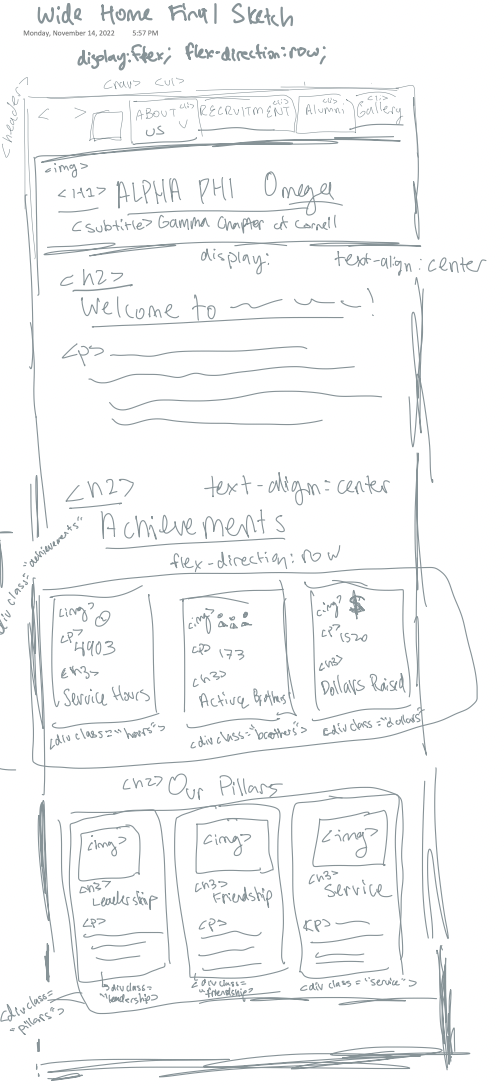 Wide Home Final Sketch
Monday, November 14, 2022 5:57 PM
display:flex; flex-direction:row;
<nav> <ul>
<header>
< >
ABOUT US <li> V
RECRUITMENT <li>
Alumni <li>
Gallery <li>
<img>
<H1> ALPHA PHI Omega
<subtitle> Gamma Chapter at Cornell
display:
text-align:center
<h2>
Welcome to !
<p>
<h2> text-align=center
Achievements
div class="achievements"
flex-direction:row
<img>
<p> 4903
<h3>
Service Hours
<div class="hours">
<img>
<p> 173
<h3>
Active Brothers
<div class="brothers">
<img> $
<p> 1520
<h3>
Dollars Raised
<div class="dollars">
<h2> Our Pillars
<img>
<h3>
Leadership
<p>
<div class="leadership">
<img>
<h3>
Friendship
<p>
<div class="friendship">
<img>
<h3>
Service
<p>
<div class="service">
<div class="pillars">